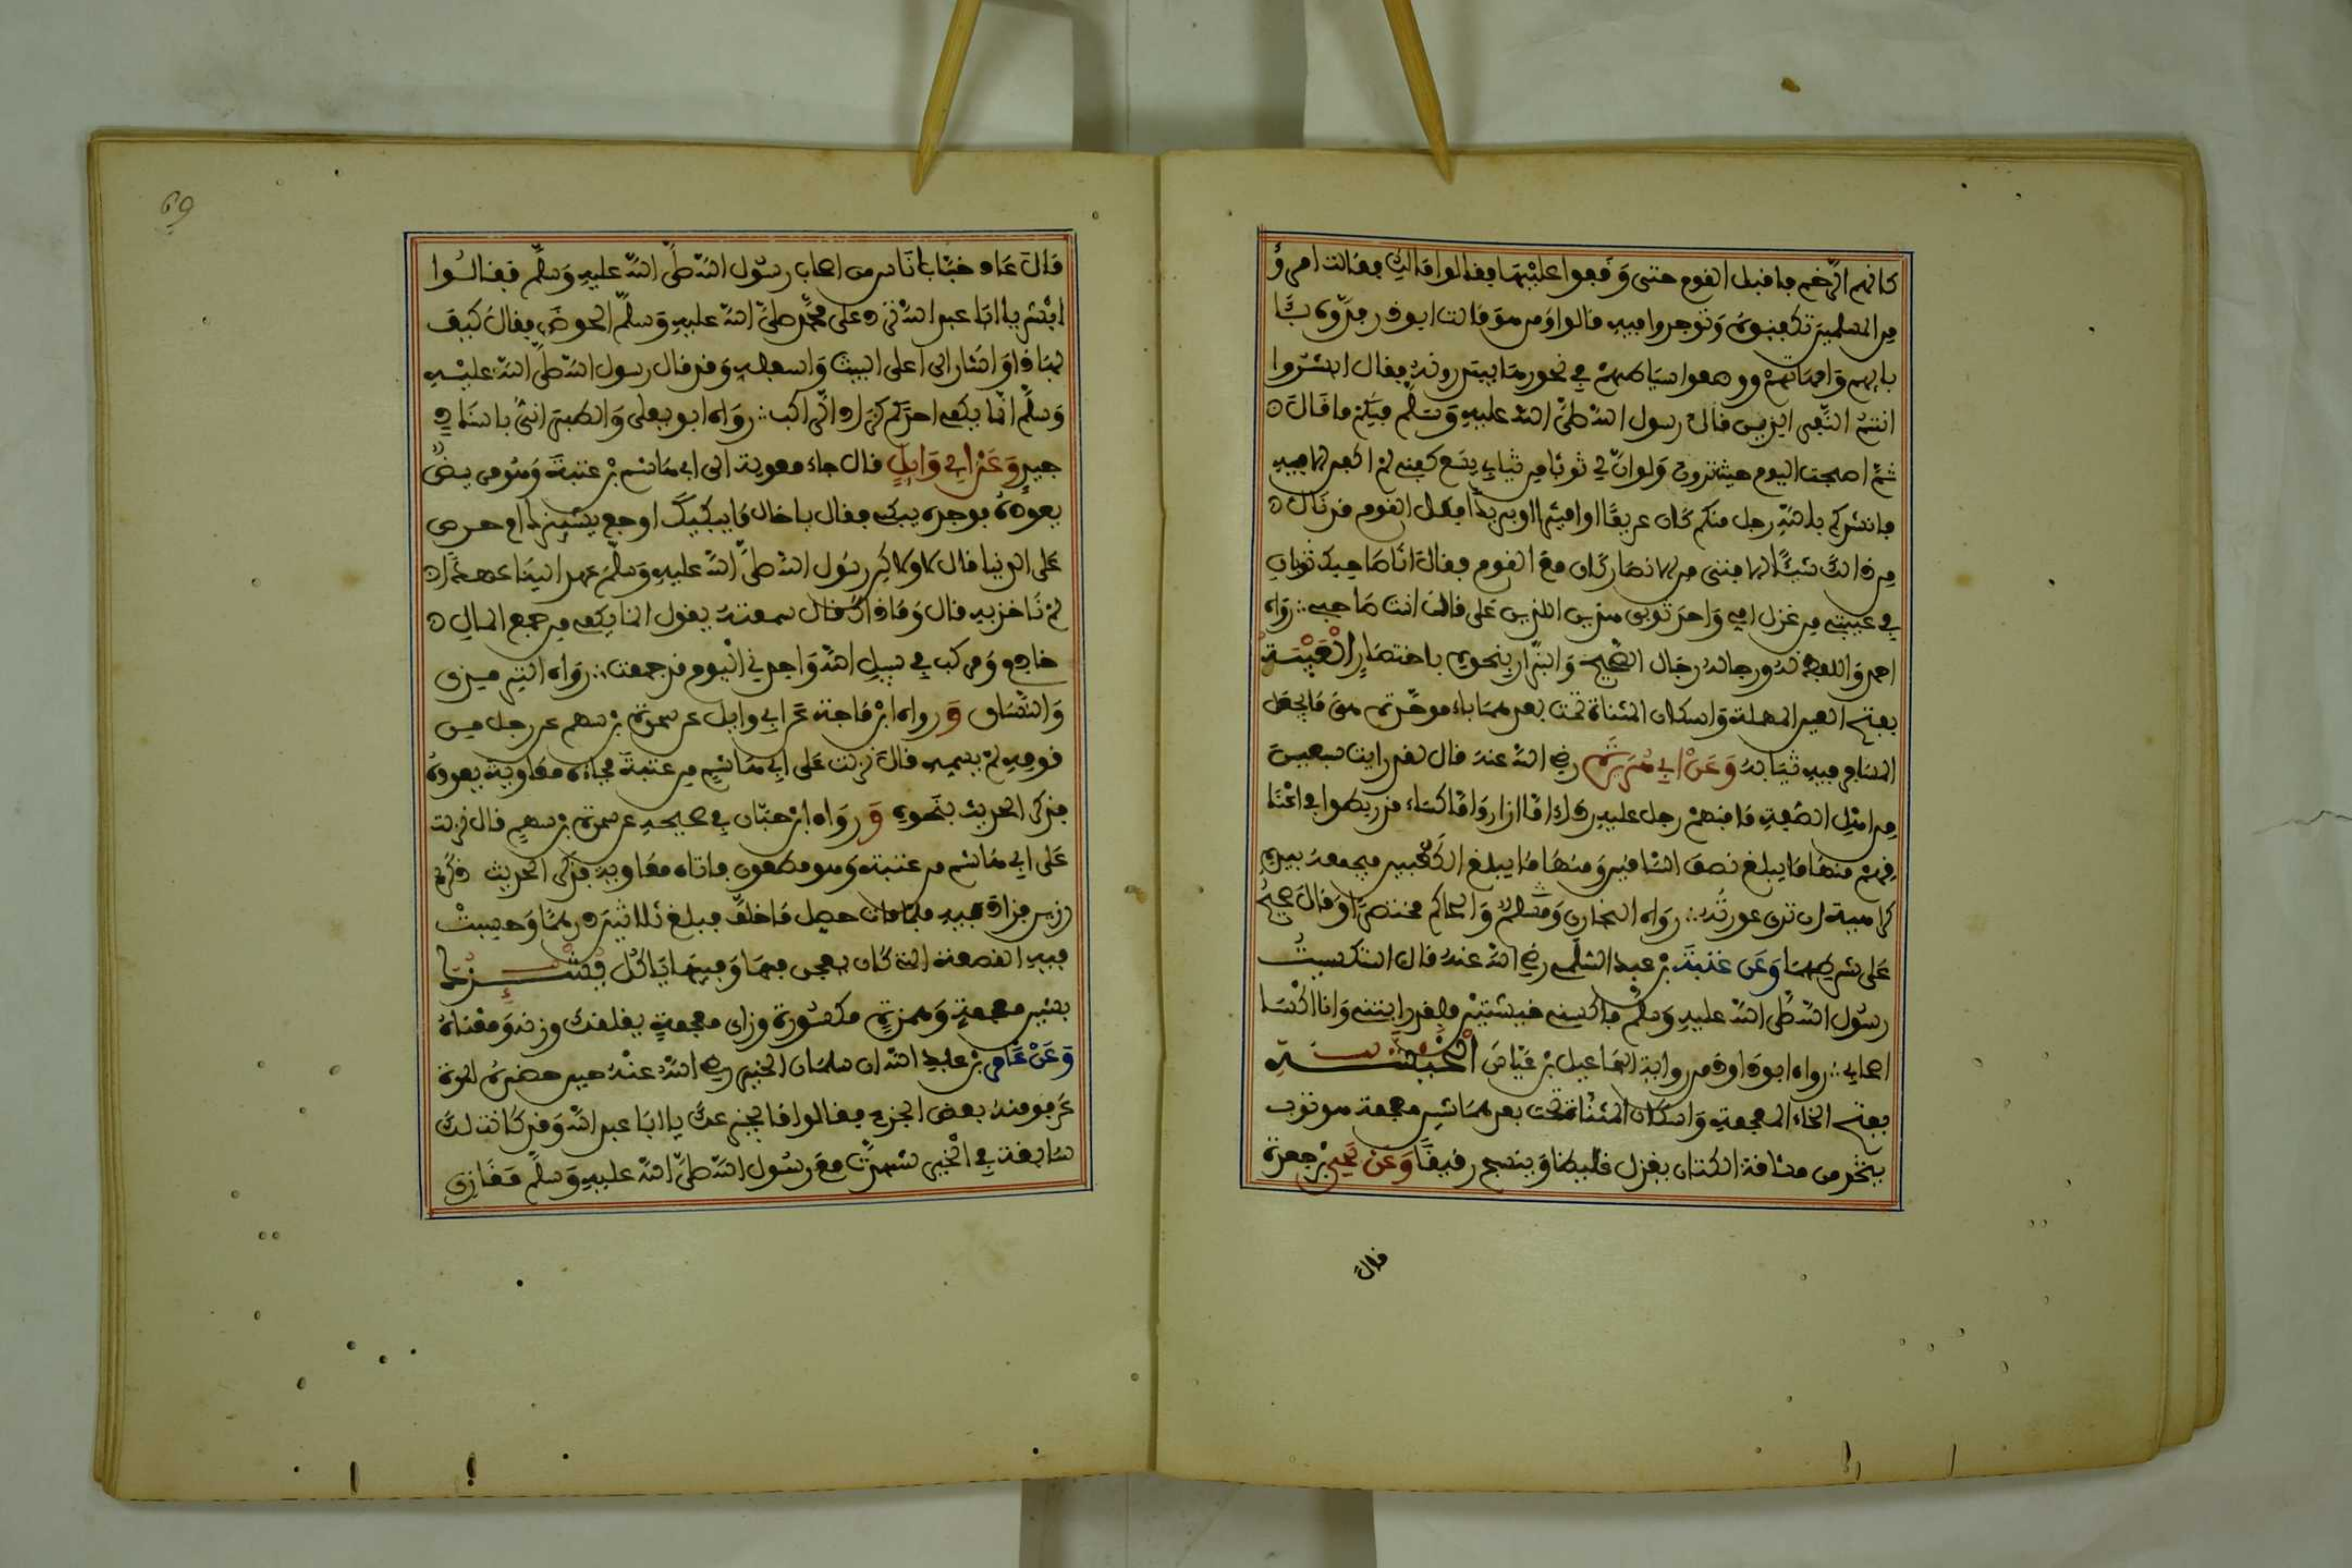 كانهم الرخم فاقبل القوم حتى وقفوا عليها فقالوا مالك فقالت امرؤ
من المسلمين تكفنونه وتوجروا فيه قالوا ومن هو قالت ابو ذر ففدوه بئا
بايهم وامهاتهم ووضعوا سياطهم في نحورها يبتدرونه فقال ابشروا
انتم النفر الذين قال رسول الله صلى الله عليه وسلم فيكم ما قال
ثم اصبحت اليوم حيث ترون ولو ان لي ثوبا من ثيابي يسع كفني لم اكفن الا فيه
فانشدكم بالله رجل منكم كان عريفا او اميرا او بريدا فكل القوم قد نال
من ذلك شيئا الا فتى من الانصار كان مع القوم فقال انا صاحبك ثوبان
في عيبتي من غزل امي واحد ثوبي هذين اللذين علي قال انت صاحبي :. رواه
احمد واللفظ له ورجاله رجال الصحيح والبزار بنحوه باختصار العيبة
بفتح العين المهملة واسكان المثناة تحت بعدها باء موحدة هو ما يجعل
المسافر فيه ثيابه وعن ابي هريرة رضي الله عنه قال لقد رايت سبعين
من اهل الصفة ما منهم رجل عليه رداء اما ازار واما كساء قد ربطوا في اعنا
قهم منها ما يبلغ نصف الساقين ومنها ما يبلغ الكعبين فيجمعه بيده
كراهية ان ترى عورته :. رواه البخاري ومسلم والحاكم مختصرا وقال صحيح
على شرطهما وعن عتبة بن عبد السلمي رضي الله عنه قال استكسيت
رسول الله صلى الله عليه وسلم فاكسني خيشتين فلقد رايتني وانا اكسا
اصحابي :. رواه ابو داود من رواية اسماعيل بن عياش الخيشة
بفتح الخاء المعجمة واسكان المثناة تحت بعدها شين معجمة هو ثوب
يتخذ من مشاقة الكتان يغزل غليظا وينسج رقيقا وعن يحيى بن جعدة
قال
69
قال عاد خبابا ناس من اصحاب رسول الله صلى الله عليه وسلم فقالوا
ابشر يا ابا عبد الله ترد على محمد صلى الله عليه وسلم الحوض فقال كيف
بهاذا واشار الى اعلى البيت واسفله وقد قال رسول الله صلى الله عليه
وسلم انما يكفي احدكم كزاد الراكب :. رواه ابو يعلى والطبراني باسناد
جيد وعن ابي وايل قال جاء معوية الى ابي هاشم بن عتبة وهو مريض
يعوده فوجده يبكي فقال يا خال ما يبكيك اوجع يشئزك ام حرص
على الدنيا قال كلا ولاكن رسول الله صلى الله عليه وسلم عهد الينا عهدا
لم ناخذ به قال وما ذاك قال سمعته يقول انما يكفي من جمع المال
خادم ومركب في سبيل الله واجدني اليوم قد جمعت :. رواه الترميذي
والنساي و رواه ابن ماجة عن ابي وايل عن سمرة بن سهم عن رجل من
قومه لم يسمه قال نزلت على ابي هاشم بن عتبة فجاءه معاوية يعوده
فذكر الحديث بنحوه و رواه ابن حبان في صحيحه عن سمرة بن سهم قال نزلت
على ابي هاشم بن عتبة وهو مطعون فاتاه معاوية فذكر الحديث ذكره
رزين فزاد فيه فلما مات حصل ما خلف فبلغ ثلاثين درهما وحسبت
فيه القصعة التي كان يعجن فيها وفيها ياكل يشئزك
بشين معجمة وهمزة مكسورة وزاي معجمة يقلقك وزنه ومعناه
وعن عامر بن عبد الله ان سلمان الخير رضي الله عنه حين حضره الموت
عرفو منه بعض الجزع فقالوا ما يجزعك يا ابا عبد الله وقد كانت لك
سابقة في الخير شهدت مع رسول الله صلى الله عليه وسلم مغازي